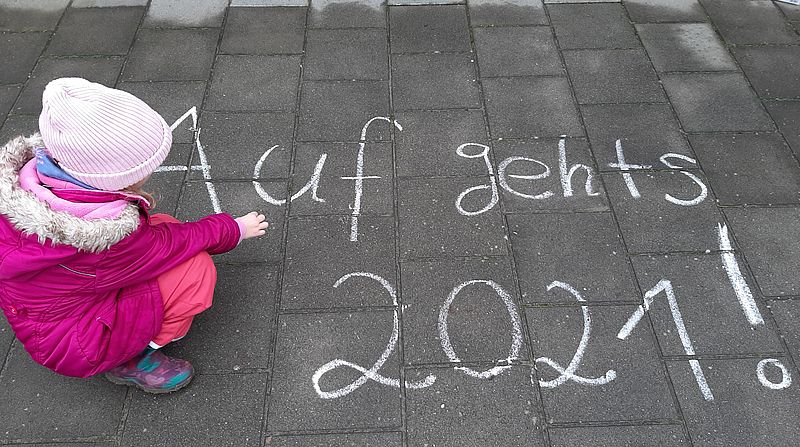 Auf gehts
2021!